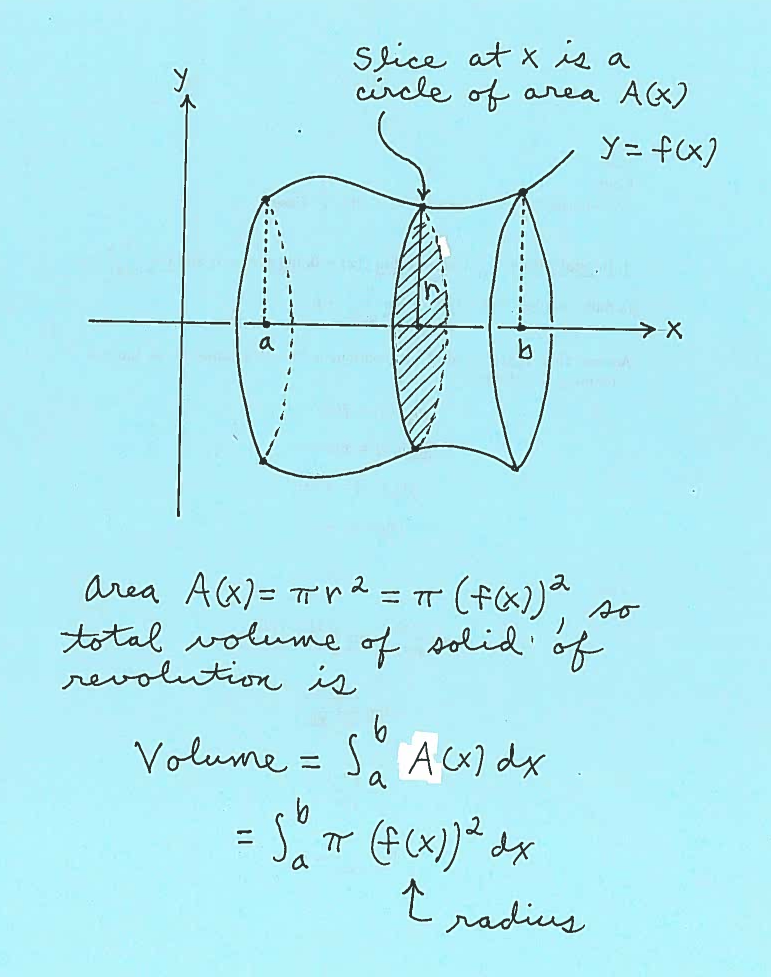 Slice at x is a
circle of area A(x)
y
y = f(x)
r
a
b
x
Area A(x) = πr² = π (f(x))², so
total volume of solid of
revolution is
Volume = ∫ₐᵇ A(x) dx
= ∫ₐᵇ π (f(x))² dx
radius